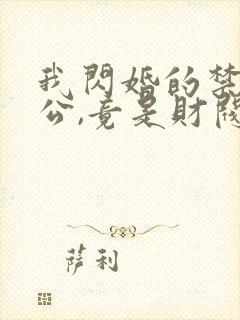 我閃婚的禁
公,竟是財閥
萨利